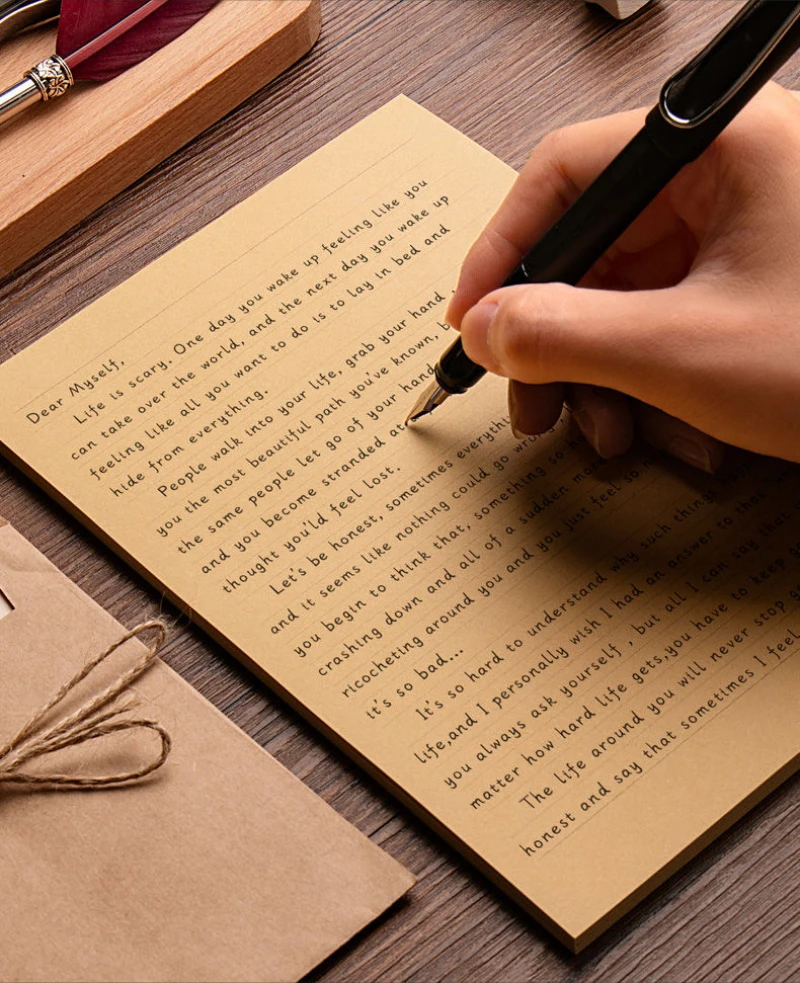 Dear Myself,
Life is scary. One day you wake up feeling like you
can take over the world, and the next day you wake up
feeling like all you want to do is to lay in bed and
hide from everything.
People walk into your life, grab your hand,
you the most beautiful path you've known,
the same people let go of your hand
and you become stranded at
thought you'ld feel lost.
Let's be honest, sometimes
and it seems like nothing could go
you begin to think that, something so
crashing down and all of a sudden
ricocheting around you and you just feel so
it's so bad...
It's so hard to understand why such things
life,and I personally wish I had an answer to that
you always ask yourself , but all I can say that
matter how hard life gets,you have to keep
The life around you will never stop
honest and say that sometimes I feel